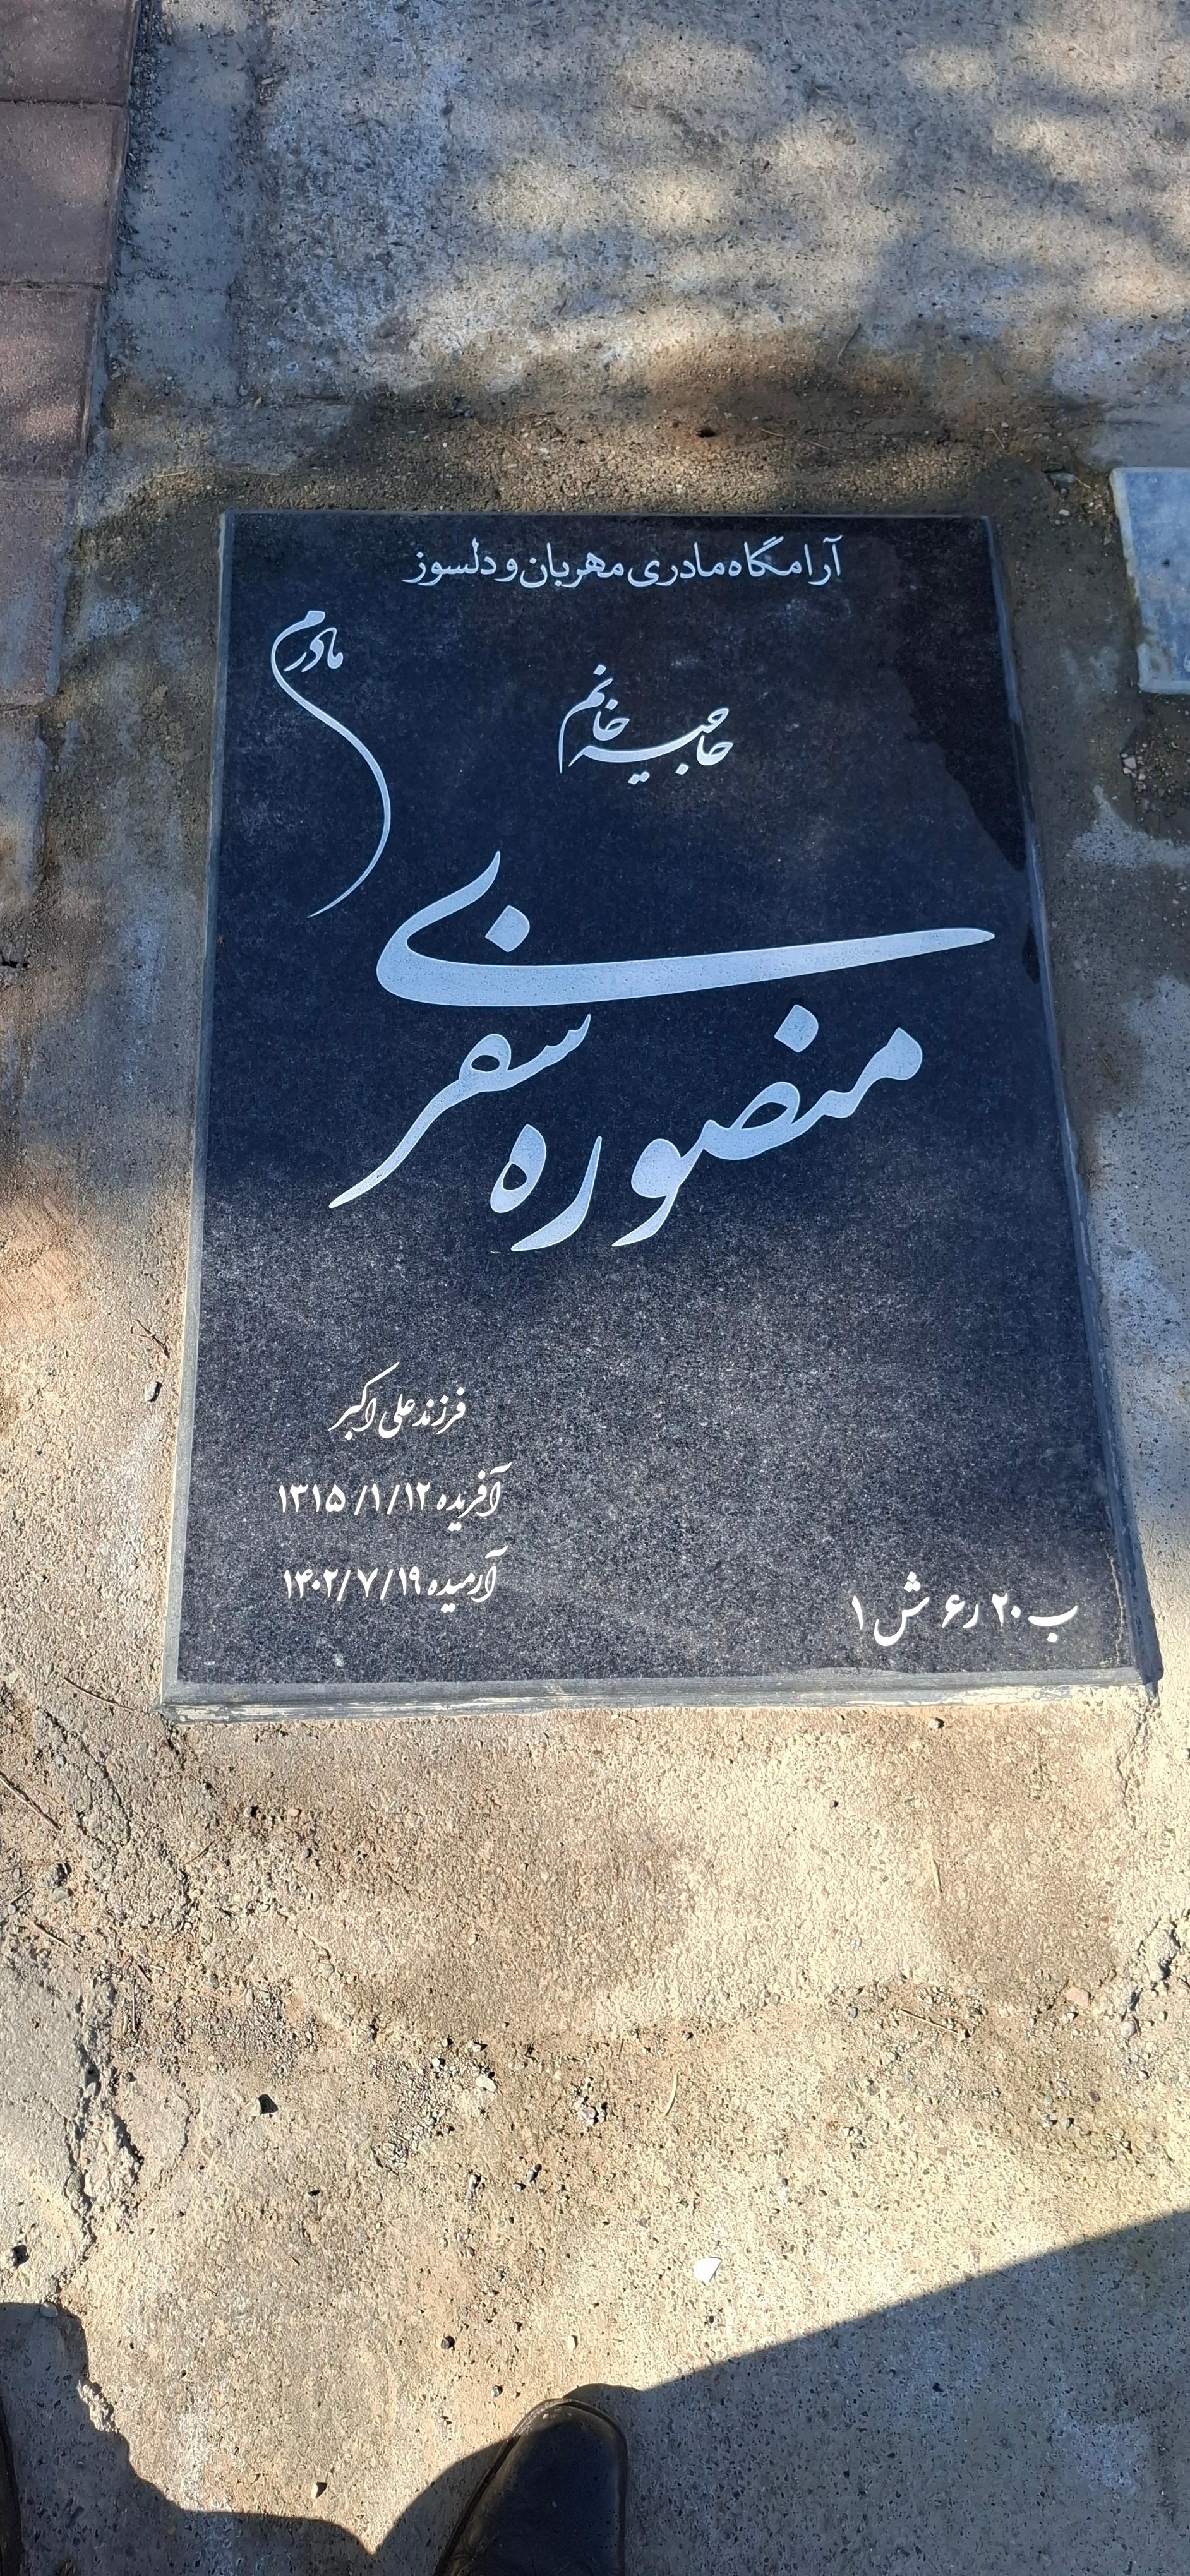 آرامگاه مادری مهربان و دلسوز
مادرم
حاجیه خانم
منصوره سفری
فرزند علی اکبر
آفریده ۱۳۱۵/۱/۱۲
آرمیده ۱۴۰۲/۷/۱۹
ب ۲۰ ر ۶ ش ۱